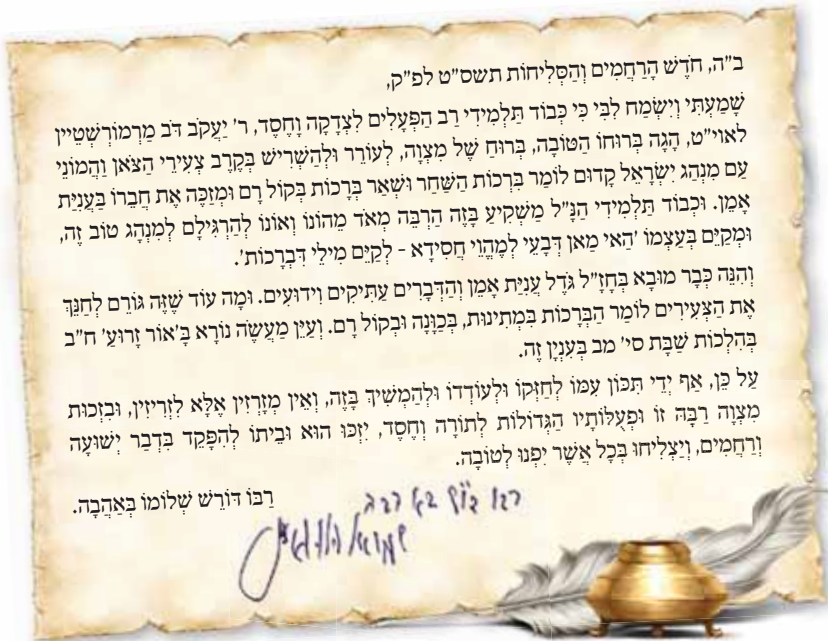 ב"ה, חֹדֶשׁ הָרַחֲמִים וְהַסְּלִיחוֹת תשס"ט לפ"ק,
שָׁמַעְתִּי וַיִּשְׂמַח לִבִּי כִּי כְּבוֹד תַּלְמִידִי רַב הַפְּעָלִים לִצְדָקָה וָחֶסֶד, ר' יַעֲקֹב דֹּב מַרְמוֹרְשְׁטֵיין
לאוי"ט, הָגָה בְּרוּחוֹ הַטּוֹבָה, בְּרוּחַ שֶׁל מִצְוָה, לְעוֹרֵר וּלְהַשְׁרִישׁ בְּקֶרֶב צְעִירֵי הַצֹּאן וַהֲמוֹנֵי
עַם מִנְהַג יִשְׂרָאֵל קָדוּם לוֹמַר בִּרְכוֹת הַשַּׁחַר וּשְׁאַר בְּרָכוֹת בְּקוֹל רָם וּמְזַכֶּה אֶת חֲבֵרוֹ בַּעֲנִיַּת
אָמֵן. וּכְבוֹד תַּלְמִידִי הַנַּ"ל מַשְׁקִיעַ בָּזֶה הַרְבֵּה מְאֹד מֵהוֹנוֹ וְאוֹנוֹ לְהַרְגִּילָם לְמִנְהָג טוֹב זֶה,
וּמְקַיֵּם בְּעַצְמוֹ 'הַאי מַאן דְּבָעֵי לְמֶהֱוֵי חֲסִידָא - לְקַיֵּם מִילֵּי דִּבְרָכוֹת'.
וְהִנֵּה כְּבָר מוּבָא בְּחָזַ"ל גֹּדֶל עֲנִיַּת אָמֵן וְהַדְּבָרִים עַתִּיקִים וִידוּעִים. וּמָה עוֹד שֶׁזֶּה גּוֹרֵם לְחַנֵּךְ
אֶת הַצְּעִירִים לוֹמַר הַבְּרָכוֹת בִּמְתִינוּת, בְּכַוָּנָה וּבְקוֹל רָם. וְעַיֵּן מַעֲשֶׂה נוֹרָא בָּ'אוֹר זָרוּעַ' ח"ב
בְּהִלְכוֹת שַׁבָּת סי' מב בְּעִנְיָן זֶה.
עַל כֵּן, אַף יָדֵי תִּכּוֹן עִמּוֹ לְחַזְּקוֹ וּלְעוֹדְדוֹ וּלְהַמְשִׁיךְ בָּזֶה, וְאֵין מְזָרְזִין אֶלָּא לִזְרִיזִין, וּבִזְכוּת
מִצְוָה רַבָּה זוֹ וּפְעֻלּוֹתָיו הַגְּדוֹלוֹת לְתוֹרָה וְחֶסֶד, יִזְכּוּ הוּא וּבֵיתוֹ לְהִפָּקֵד בִּדְבַר יְשׁוּעָה
וְרַחֲמִים, וְיַצְלִיחוּ בְּכָל אֲשֶׁר יִפְנוּ לְטוֹבָה.
רַבּוֹ דּוֹרֵשׁ שְׁלוֹמוֹ בְּאַהֲבָה.
שמואל